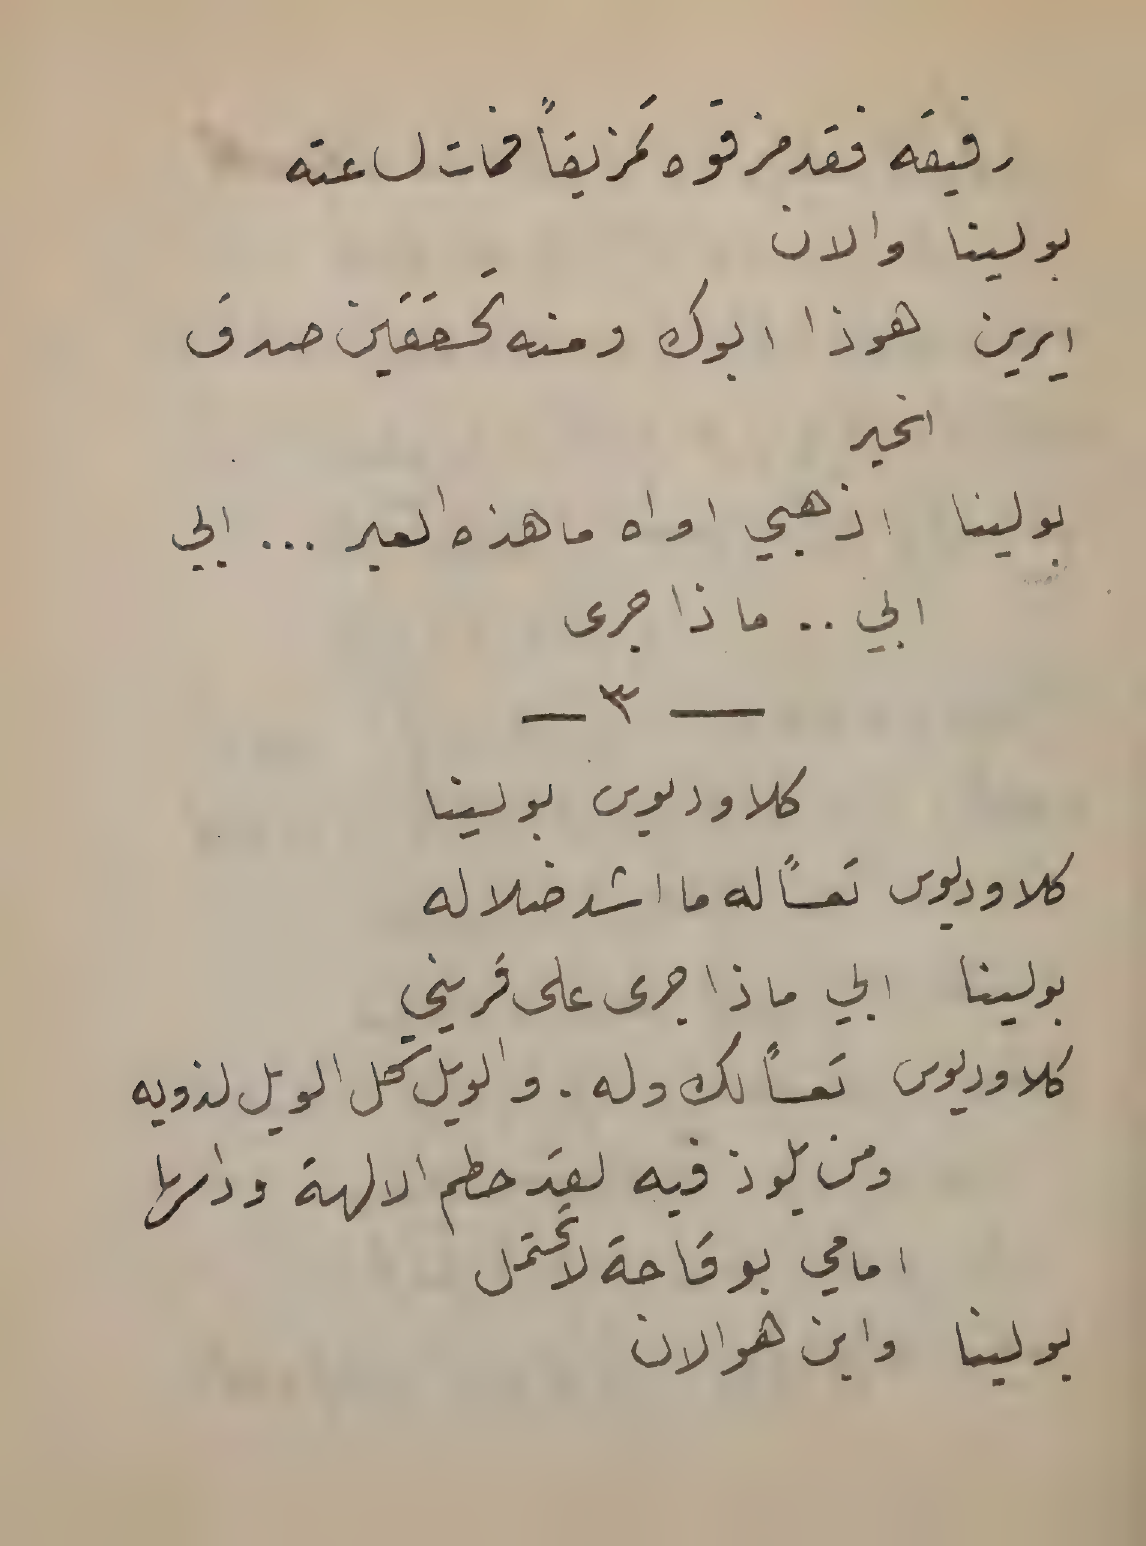 رفيقه فقد مزقوه تمزيقاً فمات لساعته
بولينا والان
ايرين هوذا ابوك ومنه تحققين صدق
الخبر
بولينا اذهبي اواه ما هذه العبر ... ابي
ابي .. ماذا جرى
— ٣ —
كلاوديوس بولينا
كلاوديوس تعساً له ما اشد ضلاله
بولينا ابي ماذا جرى على قريني
كلاوديوس تعساً لك وله . والويل كل الويل لذويه
ومن يلوذ فيه لقد حطم الالهة وداسها
امامي بوقاحة لا تحتمل
بولينا واين هو الان